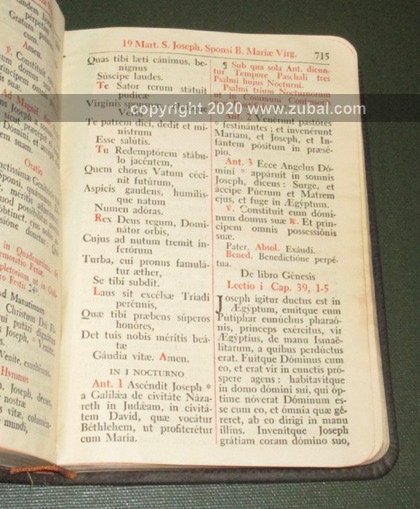 19 Mart. S. Joseph, Sponsi B. Mariæ Virg.
715
Quas tibi læti cánimus, be-
nignus
Súscipe laudes.
Te Sator rerum státuit
pudícæ
Virginis sponsum
Te patrem dici, dedit et mi-
nistrum
Esse salútis.
Tu Redemptórem stábu-
lo jacéntem,
Quem chorus Vatum céci-
nit futúrum,
Aspicis gaudens, humilís-
que natum
Numen adóras.
Rex Deus regum, Domi-
nátor orbis,
Cujus ad nutum tremit in-
ferórum
Turba, cui pronus famulá-
tur æther,
Se tibi subdit.
Laus sit excélsæ Tríadi
perénnis,
Quæ tibi præbens súperos
honóres,
Det tuis nobis méritis beá-
tæ
Gáudia vitæ. Amen.
IN I NOCTURNO
Ant. 1 Ascéndit Joseph *
a Galilǽa de civitáte Náza-
reth in Judǽam, in civitá-
tem David, quæ vocátur
Béthlehem, ut profiterétur
cum María.
¶ Sub qua sola Ant. dicun-
tur Tempore Paschali tres
Psalmi hujus Nocturni.
Psalmi trium Nocturnorum
ut in Communi
Ant. 2 Venérunt pastóres
festinántes : et invenérunt
Maríam, et Joseph, et In-
fántem pósitum in præsé-
pio.
Ant. 3 Ecce Angelus Dó-
mini * appáruit in somnis
Joseph, dicens : Surge, et
áccipe Púerum et Matrem
ejus, et fuge in Ægýptum.
℣. Constítuit eum dómi-
num domus suæ ℟. Et prín-
cipem omnis possessiónis
suæ.
Pater. Absol. Exáudi.
Bened. Benedictióne perpé-
tua.
De libro Génesis
Lectio i Cap. 39, 1-5
Joseph ígitur ductus est in
Ægýptum, emítque eum
Pútiphar eunúchus pharaó-
nis, princeps exércitus, vir
Ægýptius, de manu Ismaë-
litárum, a quibus perdúctus
erat. Fuítque Dóminus cum
eo, et erat vir in cunctis pró-
spere agens : habitavítque
in domo dómini sui, qui óp-
time nóverat Dóminum es-
se cum eo, et ómnia quæ gé-
reret, ab eo dírigi in manu
illíus. Invenítque Joseph
grátiam coram dómino suo,
copyright 2020 www.zubal.com